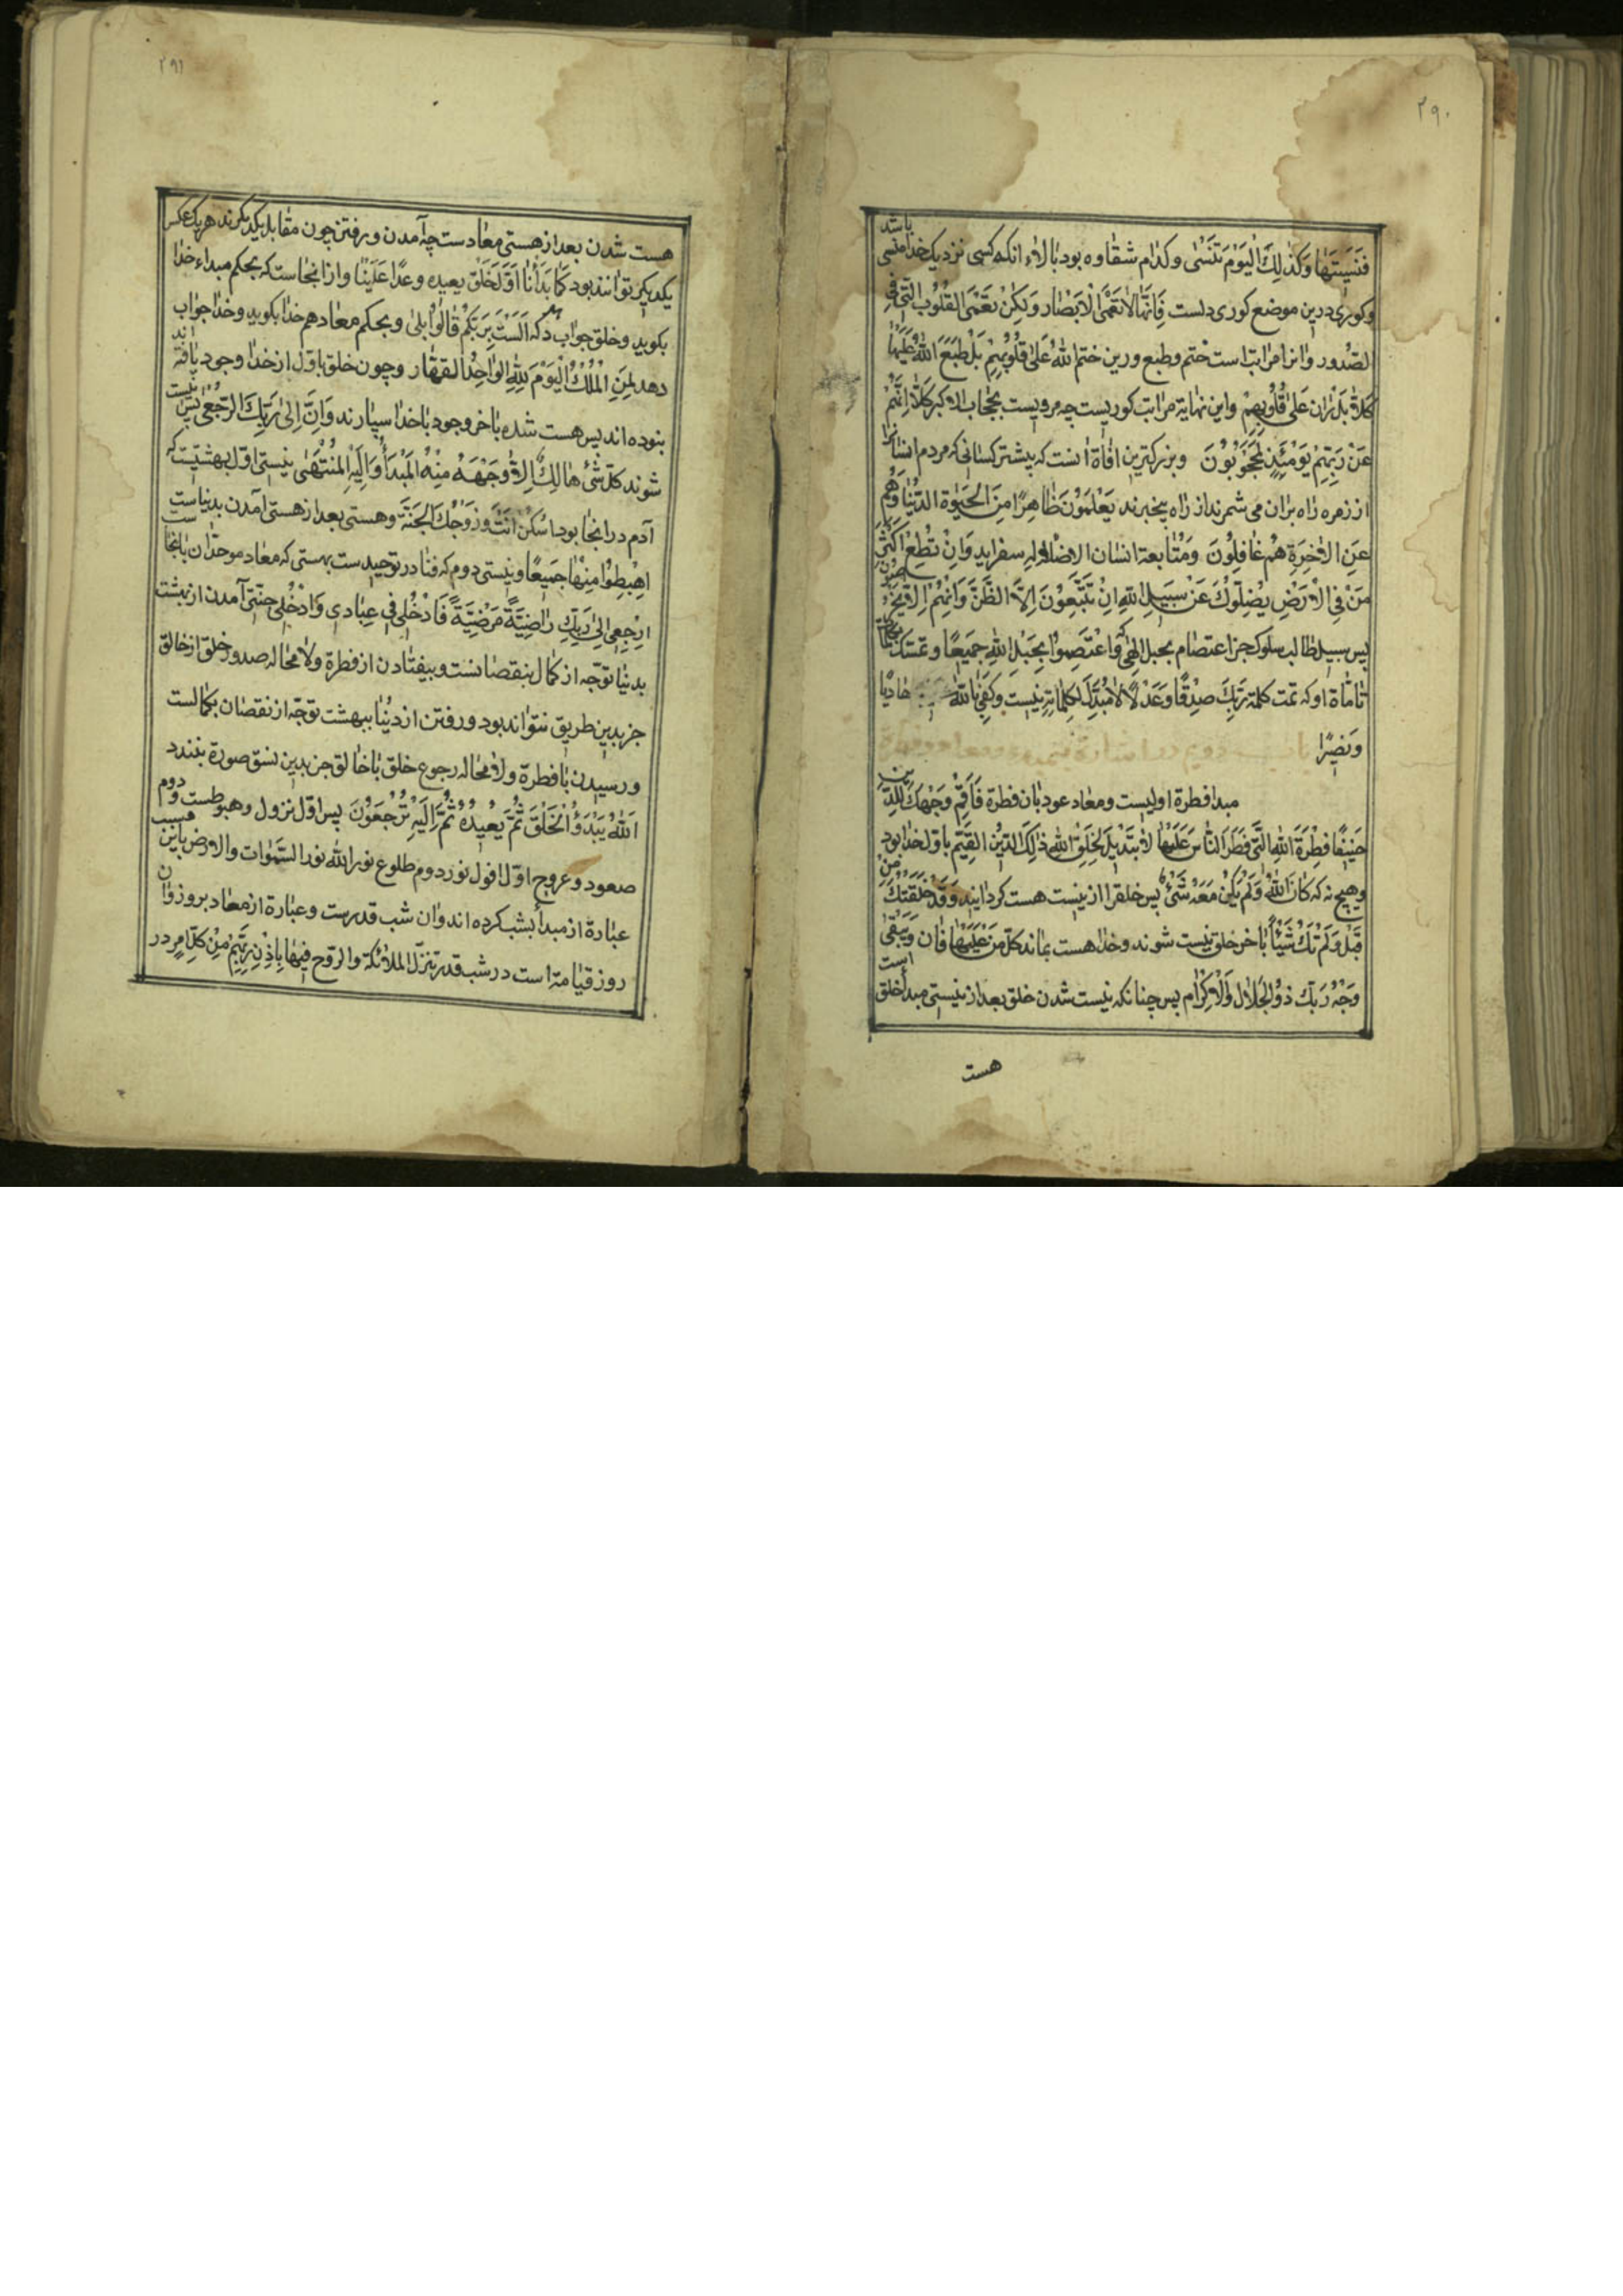 ۲۹۰
فَنَسِیتَهٰا وَکَذٰلِكَ الْیَوْمَ تُنْسٰی وکدٰام شقٰاوه بود بٰالاء انکه کسی نزدیک خدٰا منسی باشد
وکوری درین موضع کوری دلست فَاِنَّهٰا لاٰ تَعْمَی الْاَبْصٰار وَلٰکِنْ تَعْمَی القُلُوبُ الَّتِی فِی
الصُّدور وٰانرا مرٰاتب است ختم وطبع ورین ختم اللهُ عَلیٰ قُلُوبِهِمْ بَلْ طَبَعَ اللهُ عَلَیْهٰا
کَلاّٰ بَلْ رٰانَ عَلیٰ قُلُوبِهِمْ واین نهایة مرٰاتب کوریست چه مردیست بحجٰاب الاکبر کَلاّٰ اِنَّهُمْ
عَنْ رَبِّهِمْ یَوْمَئِذٍ لَمَحْجُوبُونَ وبزرکترین افٰاة انست که بیشتر کسٰانی که مردم انسٰانرا
از زمره رٰاه برٰان می شمرند از رٰاه بیخبرند یَعْلَمُونَ ظٰاهِرًا مِنَ الْحَیٰوةِ الدُّنْیٰا وَهُمْ
عَنِ الاٰخِرَةِ هُمْ غٰافِلُونَ وَمُتٰابعة انسٰان الاضلاله سفزاید وَاِنْ تُطِعْ اَکْثَرَ
مَنْ فِی الاَرْضِ یُضِلّوُكَ عَنْ سَبیلِ اللهِ اِنْ یَتَّبِعُونَ اِلاَّ الظَّنَّ وَاِنْهُمْ اِلاّٰ یَخْرُصُونَ
پس سبیل طٰالب سلوک جز اعتصٰام بحبل الهٰی که وَاعْتَصِمُوا بِحَبْلِ اللهِ جَمیعًا وتمسک بکلمات
تٰامٰاة او که تمت کلمة رَبِّكَ صِدْقًا وعَدْلاً لاٰ مُبَدِّلَ لِکَلِمٰاتِهِ نیست وکَفیٰ بٰاللهِ هٰادیًا
ونَصیرًا
مبدا فطرة اولیست ومعٰاد عود بٰان فطرة فَاَقِمْ وَجْهَكَ لِلدّینِ
حَنیفًا فِطْرَةَ اللهِ الَّتی فَطَرَ النّٰاسَ عَلَیْهٰا لاٰ تَبْدیلَ لِخَلْقِ اللهِ ذٰلِكَ الدّینُ القَیِّم باوّل خدٰا بود
وهیچ نه که کٰانَ اللهُ وَلَمْ یَکُنْ مَعَهُ شَئٌ پس خلقرا از نیست هست کردٰانید وَقَدْ خَلَقْتُكَ مِنْ
قَبْلُ وَلَمْ تَكُ شَیْئًا بٰاخر خلق نیست شوند وخدٰا هست بمٰاند کلّ مَنْ عَلَیْهٰا فٰان وَیَبْقیٰ
وَجْهُ رَبِّكَ ذُو الْجَلاٰلِ وَالاِکْرٰام پس چنانکه نیست شدن خلق بعد از نیستی مبدأ خلق است
هست
۲۹۱
هست شدن بعد از هستی معٰادست چه آمدن ورفتن چون مقٰابل یکدیکرند هریک عکس
یکدیکر توٰانند بود کَمٰا بَدَأْنٰا اَوَّلَ خَلْق نعیده وعدًا عَلَیْنٰا وازٰانجٰاست که بحکم مبداء خدٰا
بکوید وخلق جوٰاب دهد که اَلَسْتُ بِرَبِّکُمْ قٰالُوا بلیٰ وبحکم معٰاد هم خدٰا بکوید وخدٰا جوٰاب
دهد لِمَنِ الْمُلْكُ الْیَوْمَ لِلّٰهِ الوٰاحِدُ القهّٰار وچون خلق باوّل از خدٰا وجود یٰافته اند
نبوده اند پس هست شده بٰاخر وجود بٰاخدٰا سپٰارند وَاِنَّ اِلیٰ رَبِّكَ الرُّجْعیٰ پس نیست
شوند کلّ شئ هٰالِكٌ اِلاّٰ وَجْهَهُ مِنْهُ المَبْدَأُ وَاِلَیْهِ الْمُنْتَهیٰ نیستی اوّل بهشتیست که
آدم درٰانجٰا بود اُسْکُنْ اَنْتَ وَزَوْجُكَ الْجَنَّةَ وهستی بعد از هستی آمدن بدنیاست
اِهْبِطُوا مِنْهٰا جَمیعًا ونیستی دوم که فنٰا در توحیدست بهستی که معٰاد موحدٰان بٰانجٰاست
اِرْجِعی اِلیٰ رَبِّكِ رٰاضِیَةً مَرْضِیَّةً فَادْخُلی فی عِبٰادی وَادْخُلی جنّتی آمدن از بهشت
بدنیٰا توجّه از کمٰال بنقصٰانست وبیفتٰادن از فطرة ولاٰمحٰاله صدور خلق از خٰالق
جز بدین طریق نتوٰاند بود ورفتن از دنیٰا ببهشت توجّه از نقصٰان بکمٰالست
ورسیدن بٰا فطرة ولاٰمحٰاله رجوع خلق بٰاخٰالق جز بدین نسق صورة نبندد
اَللهُ یَبْدَؤُ الْخَلْقَ ثُمَّ یُعیدُهُ ثُمَّ اِلَیْهِ تُرْجَعُونَ پس اوّل نزول وهبوطست ودوم
صعود وعروج اوّل افول نور دوم طلوع نور الله نور السَّمٰوٰات والارض بٰاین سبب
عبٰارة از مبدأ بشب کرده اند وٰان شب قدرست وعبٰارة از معٰاد بروز وٰان
روز قیٰامة است در شب قدر تنزّل الملاٰئکة والرّوح فیهٰا بِاِذْنِ رَبِّهِمْ مِنْ کلّ اَمرٍ در